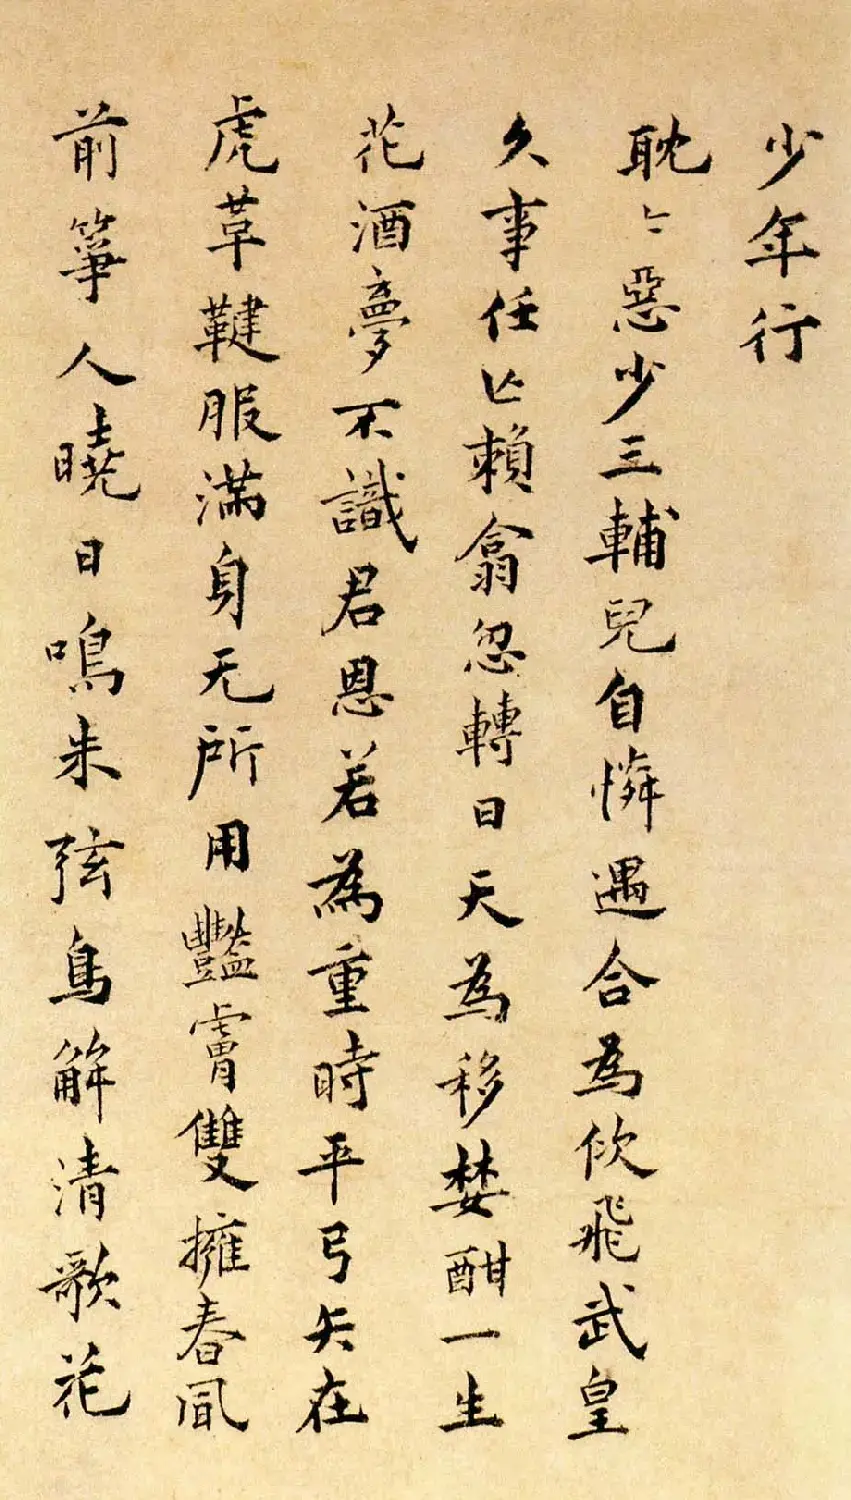 少年行
耽〻惡少三輔兒自憐遇合為佽飛武皇
久事任亡賴翕忽轉日天為移婪酣一生
花酒夢不識君恩若為重時平弓矢在
虎韋鞬服滿身无所用豔膚雙擁春風
前箏人曉日鳴朱弦鳥解清歌花